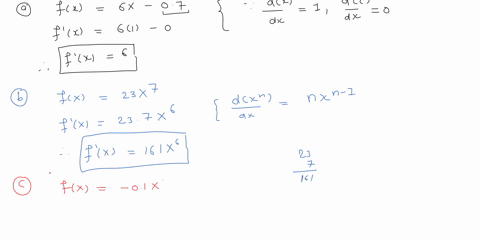 (a) f(x) = 6x - 0.7 { ∵ d(x)/dx = 1, d(c)/dx = 0
f'(x) = 6(1) - 0
∴ f'(x) = 6
(b) f(x) = 23x^7
f'(x) = 23·7x^6 { d(x^n)/dx = nx^(n-1)
∴ f'(x) = 161x^6
23
7
161
(c) f(x) = -0.1x